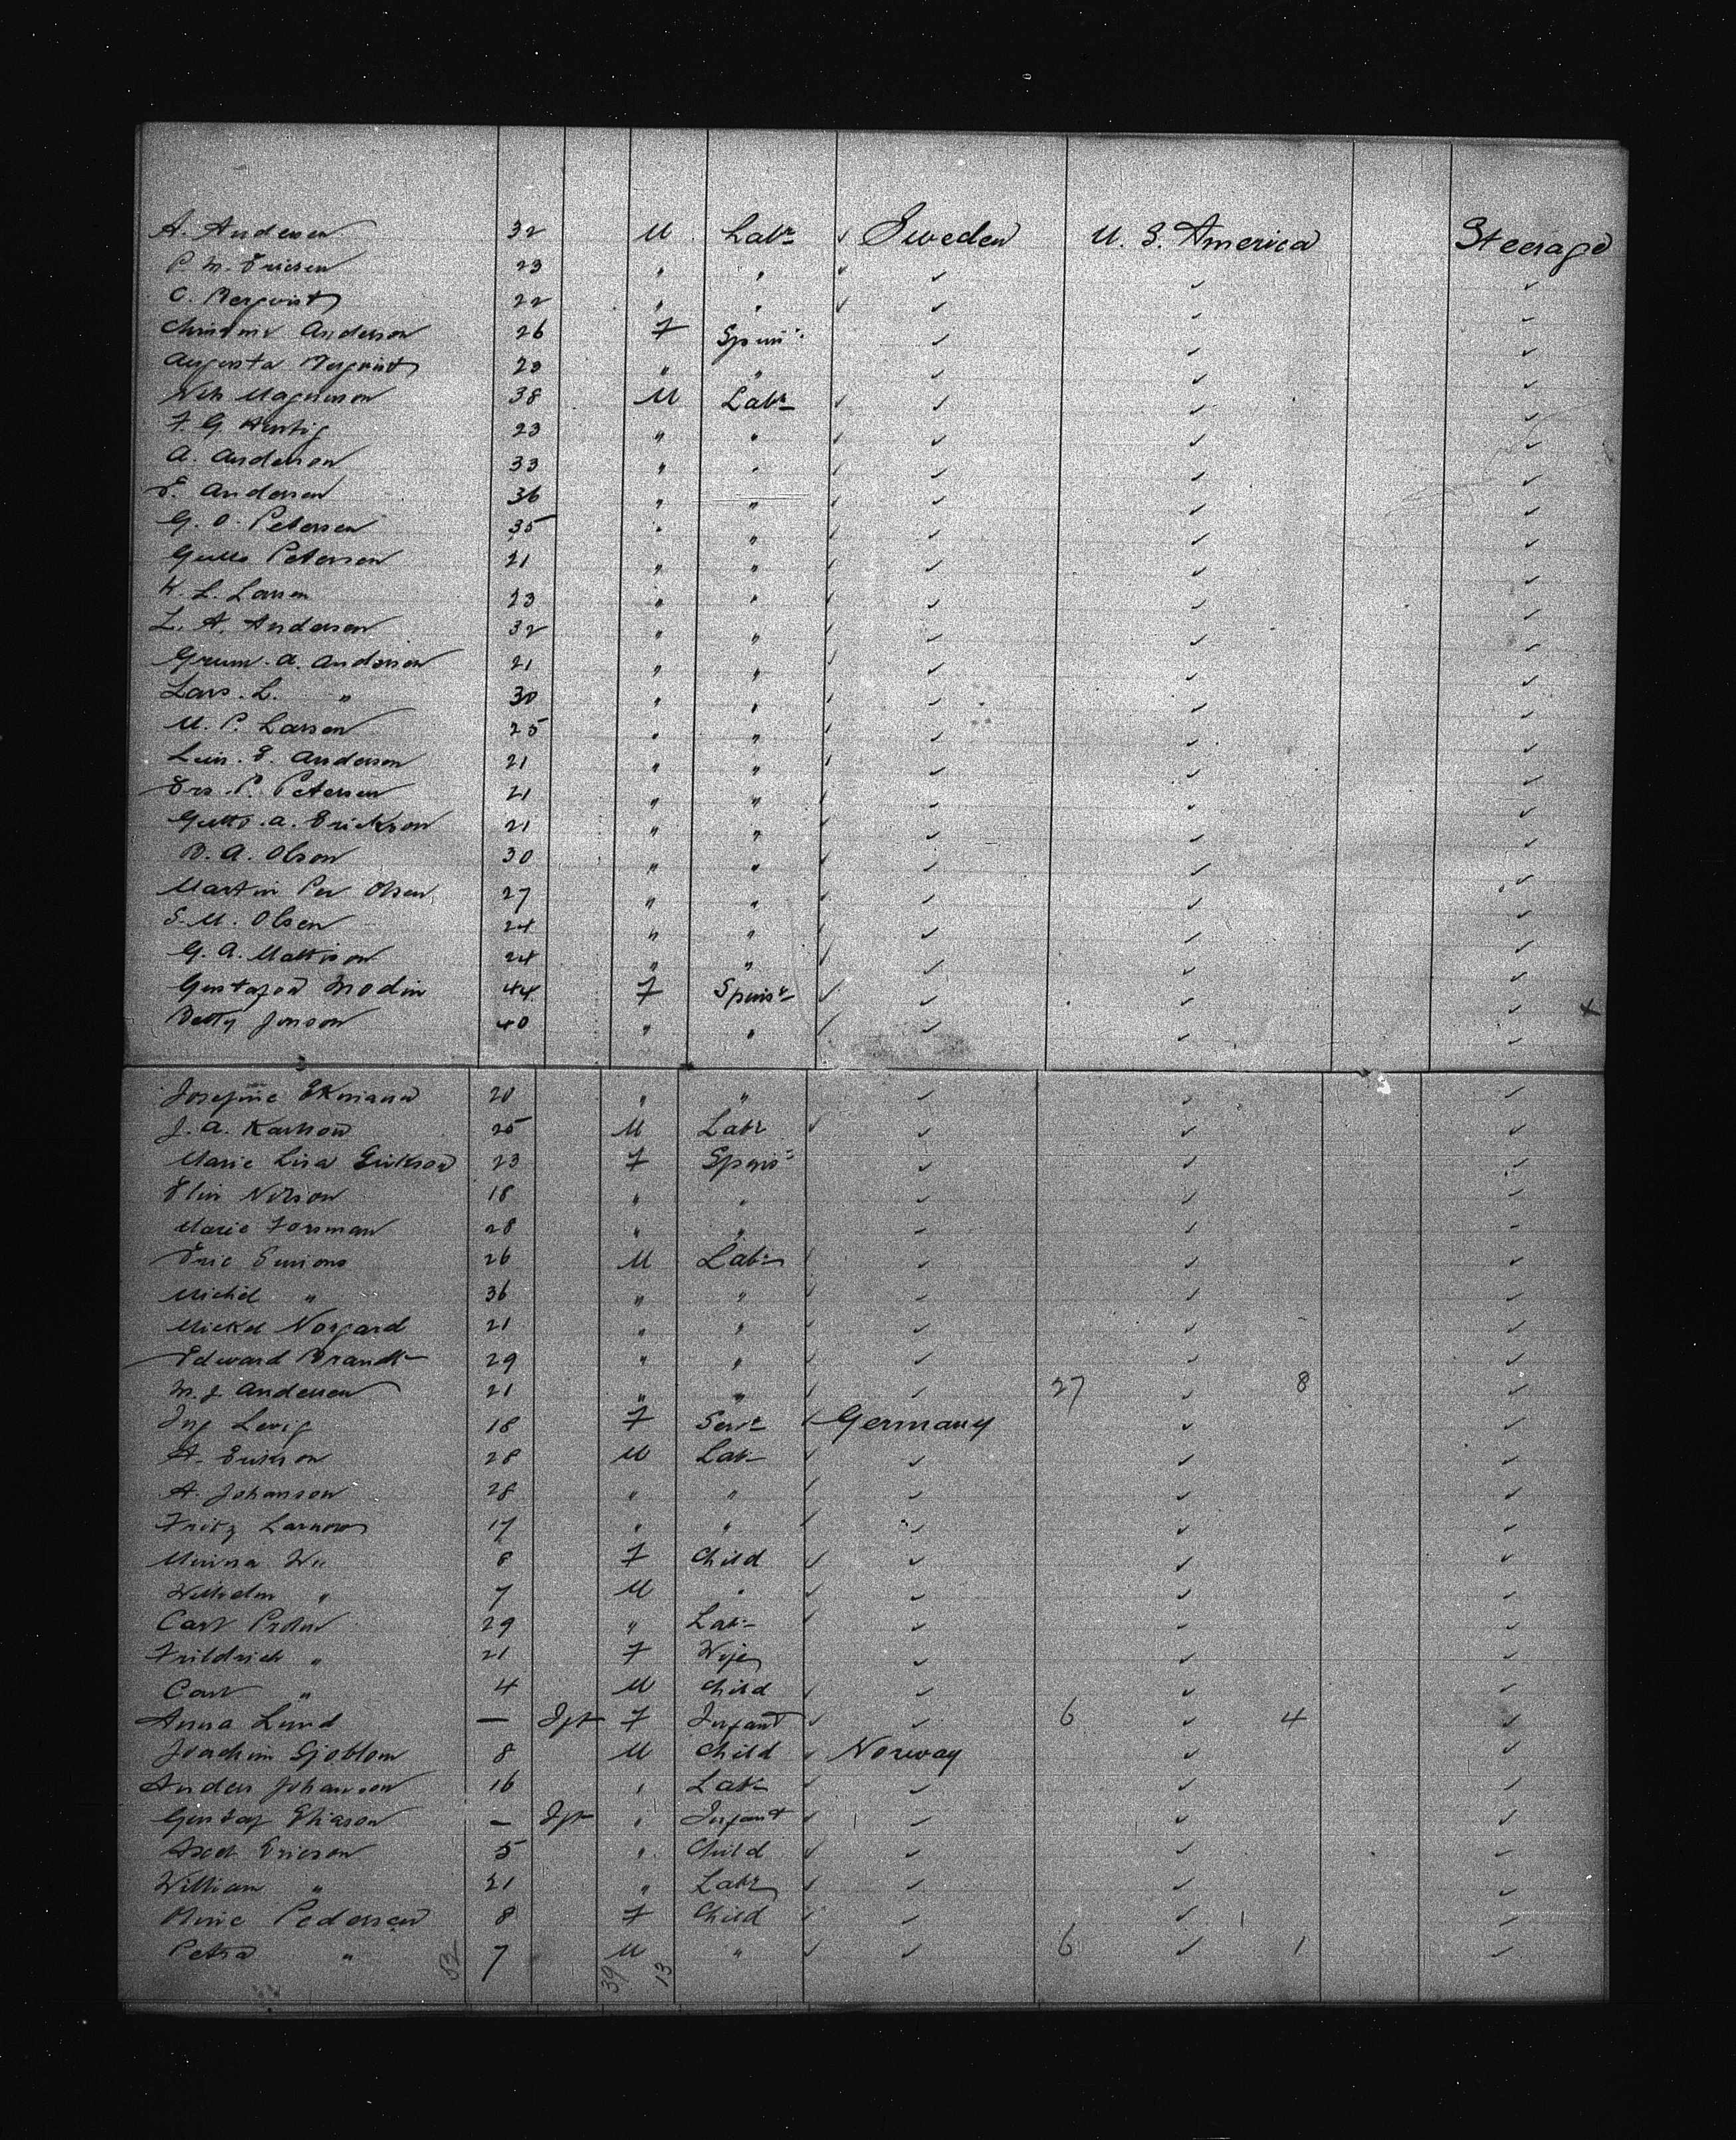 A. Andersen 32 M Labr ✓ Sweden U. S. America Steerage
P. M. Ericsen 23 " " ✓ ✓ ✓ ✓
C. Bergvist 22 " " ✓ ✓ ✓ ✓
Anderson 26 F Spins ✓ ✓ ✓
Augusta Bergvist 23 " " ✓ ✓ ✓
Magnusson 38 M Labr ✓ ✓ ✓ ✓
F. G. 23 " " ✓ ✓ ✓ ✓
A. Anderson 33 " " ✓ ✓ ✓ ✓
E. Andersen 36 " " ✓ ✓ ✓ ✓
G. O. Petersen 35 " " ✓ ✓ ✓ ✓
Petersen 21 " " ✓ ✓ ✓ ✓
K. L. Larsen 23 " " ✓ ✓ ✓ ✓
L. A. Andersen 32 " " ✓ ✓ ✓ ✓
A. Anderson 21 " " ✓ ✓ ✓ ✓
Lars. L. " 30 " " ✓ ✓ ✓ ✓
M. P. Larsen 25 " " ✓ ✓ ✓ ✓
E. Anderson 21 " " ✓ ✓ ✓ ✓
P. Petersen 21 " " ✓ ✓ ✓ ✓
A. Erickson 21 " " ✓ ✓ ✓ ✓
B. A. Olson 30 " " ✓ ✓ ✓ ✓
Martin Per Olsen 27 " " ✓ ✓ ✓ ✓
S. M. Olsen 24 " " ✓ ✓ ✓ ✓
G. A. Mattson 24 " " ✓ ✓ ✓ ✓
Modin 44 F Spinsr ✓ ✓ ✓ ✓ X
Betty Jonson 40 " " ✓ ✓ ✓ ✓
Josefine Ekmann 20 " " ✓ ✓ ✓
J. A. Karlson 25 M Labr ✓ ✓ ✓ ✓
Marie Lisa Erikson 23 F Spins ✓ ✓ ✓
Elin Nilson 18 " " ✓ ✓ ✓
Marie Forsman 28 " " ✓ ✓ ✓
Eric 26 M Labr ✓ ✓ ✓ ✓
Michel " 36 " " ✓ ✓ ✓ ✓
Mickel Norgard 21 " " ✓ ✓ ✓ ✓
Edward Brandt 29 " " ✓ ✓ ✓ ✓
M. J. Andersen 21 " " ✓ ✓ 27 ✓ 8 ✓
Ing 18 F Servt ✓ Germany ✓ ✓
A. Erikson 28 M Labr ✓ ✓ ✓ ✓
A. Johanson 28 " " ✓ ✓ ✓ ✓
Fritz 17 " " ✓ ✓ ✓ ✓
Minna 8 F Child ✓ ✓ ✓ ✓
Wilhelm " 7 M " ✓ ✓ ✓ ✓
Carl 29 " Labr ✓ ✓ ✓ ✓
Frildrich " 21 F Wife ✓ ✓ ✓
Carl " 4 M Child ✓ ✓ ✓ ✓
Anna Lund — Ift F Infant ✓ ✓ 6 ✓ 4 ✓
Joachim Sjoblom 8 M Child ✓ Norway ✓ ✓
Anders Johanson 16 " Labr ✓ ✓ ✓ ✓
Gustaf Eliason — Ift " Infant ✓ ✓ ✓ ✓
Axel Ericson 5 " Child ✓ ✓ ✓ ✓
William " 21 " Labr ✓ ✓ ✓ ✓
Pedersen 8 F Child ✓ ✓ ✓ ✓
Petra " 7 M " ✓ ✓ 6 ✓ 1 ✓
52 39 13